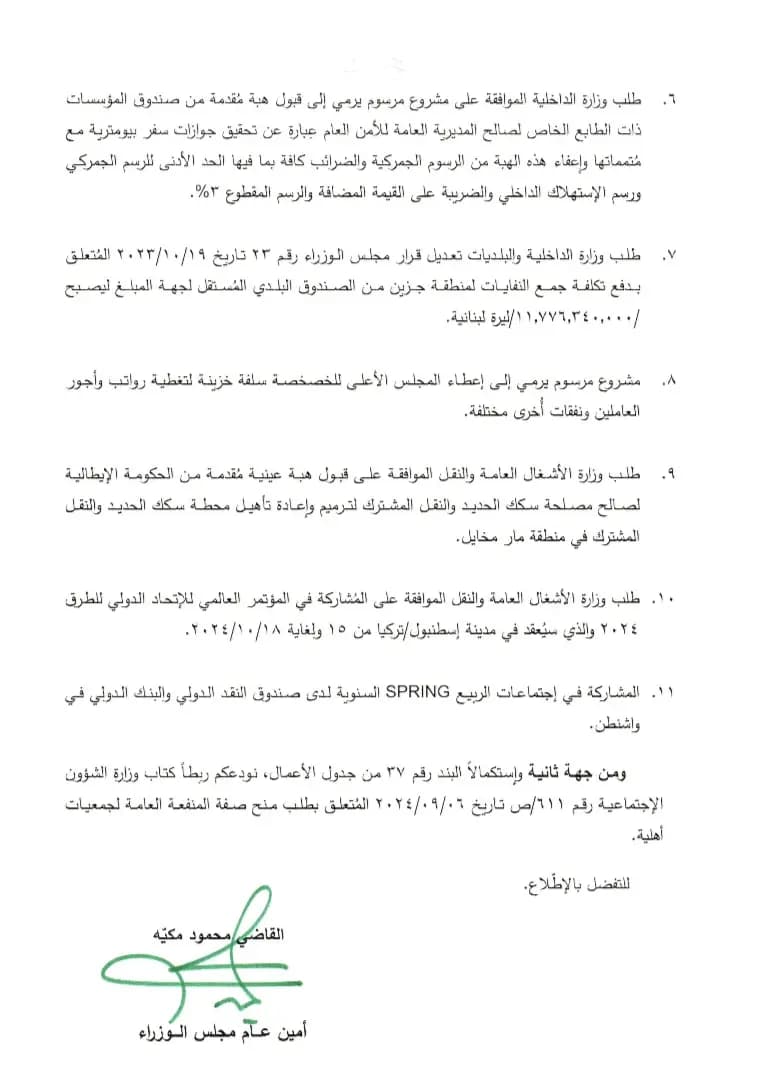 ٦. طلب وزارة الداخلية الموافقة على مشروع مرسوم يرمي إلى قبول هبة مُقدمة من صندوق المؤسسات
ذات الطابع الخاص لصالح المديرية العامة للأمن العام عِبارة عن تحقيق جوازات سفر بيومترية مع
مُتمماتها وإعفاء هذه الهبة من الرسوم الجمركية والضرائب كافة بما فيها الحد الأدنى للرسم الجمركي
ورسم الإستهلاك الداخلي والضريبة على القيمة المضافة والرسم المقطوع ٣%.
٧. طلب وزارة الداخلية والبلديات تعديل قرار مجلس الوزراء رقم ٢٣ تاريخ ٢٠٢٣/١٠/١٩ المُتعلق
بدفع تكلفة جمع النفايات لمنطقة جزين من الصندوق البلدي المُستقل لجهة المبلغ ليصبح
/١١,٧٧٦,٣٤٠,٠٠٠/ليرة لبنانية.
٨. مشروع مرسوم يرمي إلى إعطاء المجلس الأعلى للخصخصة سلفة خزينة لتغطية رواتب وأجور
العاملين ونفقات أُخرى مختلفة.
٩. طلب وزارة الأشغال العامة والنقل الموافقة على قبول هبة عينية مُقدمة من الحكومة الإيطالية
لصالح مصلحة سكك الحديد والنقل المشترك لترميم وإعادة تأهيل محطة سكك الحديد والنقل
المشترك في منطقة مار مخايل.
١٠. طلب وزارة الأشغال العامة والنقل الموافقة على المُشاركة في المؤتمر العالمي للإتحاد الدولي للطرق
٢٠٢٤ والذي سيُعقد في مدينة إسطنبول/تركيا من ١٥ ولغاية ٢٠٢٤/١٠/١٨.
١١. المشاركة في إجتماعات الربيع SPRING السنوية لدى صندوق النقد الدولي والبنك الدولي في
واشنطن.
ومن جهة ثانية وإستكمالاً البند رقم ٣٧ من جدول الأعمال، نودعكم ربطاً كتاب وزارة الشؤون
الإجتماعية رقم ٦١١/ص تاريخ ٢٠٢٤/٠٩/٠٦ المُتعلق بطلب منح صفة المنفعة العامة لجمعيات
أهلية.
للتفضل بالإطّلاع.
القاضي محمود مكيّه
أمين عام مجلس الوزراء